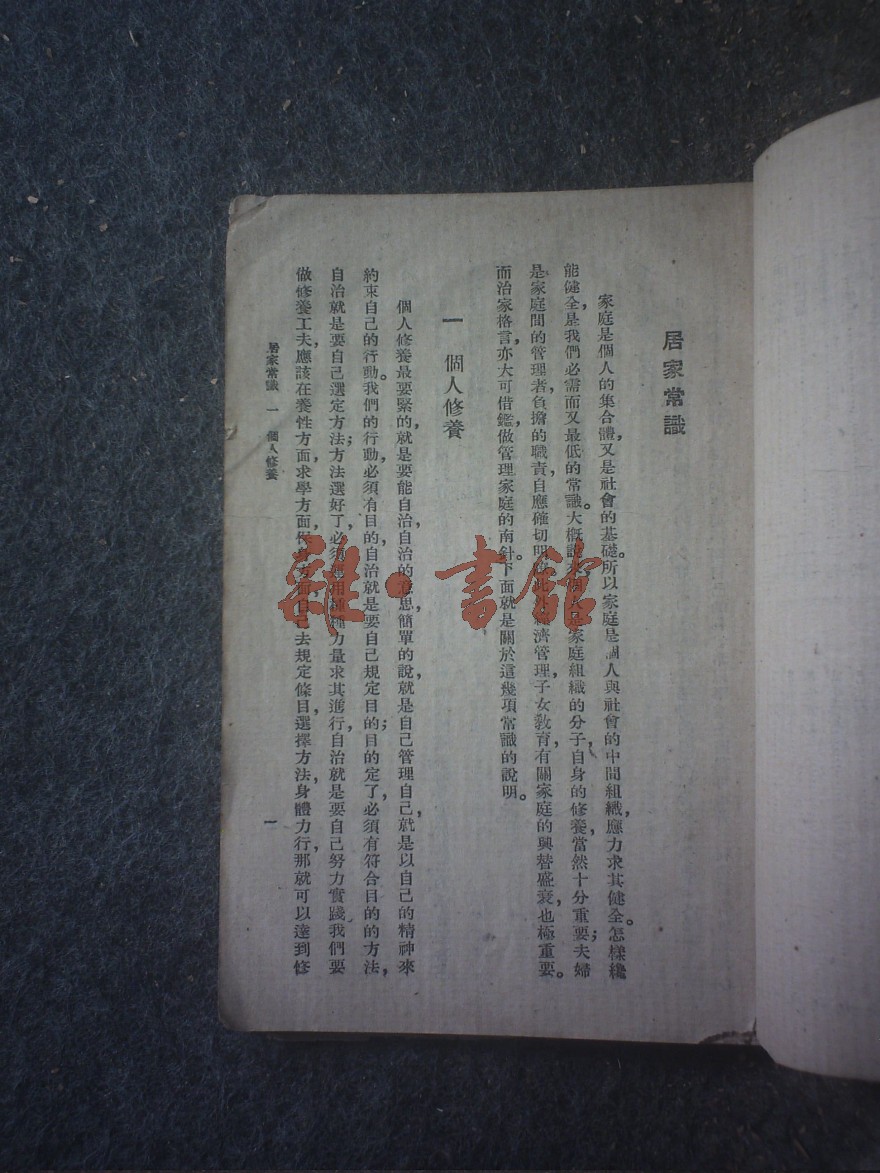 居家常識
家庭是個人的集合體，又是社會的基礎。所以家庭是個人與社會的中間組織，應力求其健全。怎樣纔
能健全，是我們必需而又最低的常識。大概說來，個人是家庭組織的分子，自身的修養，當然十分重要；夫婦
是家庭間的管理者，負擔的職責，自應確切明此外經濟管理，子女教育，有關家庭的興替盛衰，也極重要。
而治家格言，亦大可借鑑，做管理家庭的南針。下面就是關於這幾項常識的說明。
一 個人修養
個人修養最要緊的，就是要能自治，自治的意思，簡單的說，就是自己管理自己，就是以自己的精神來
約束自己的行動。我們的行動，必須有目的，自治就是要自己規定目的；目的定了，必須有符合目的的方法，
自治就是要自己選定方法；方法選好了，必須運用種種力量，求其進行，自治就是要自己努力實踐。我們要
做修養工夫，應該在養性方面，求學方面，保身方面，自己去規定條目，選擇方法，身體力行，那就可以達到修
居家常識 一 個人修養
一
雜·書館